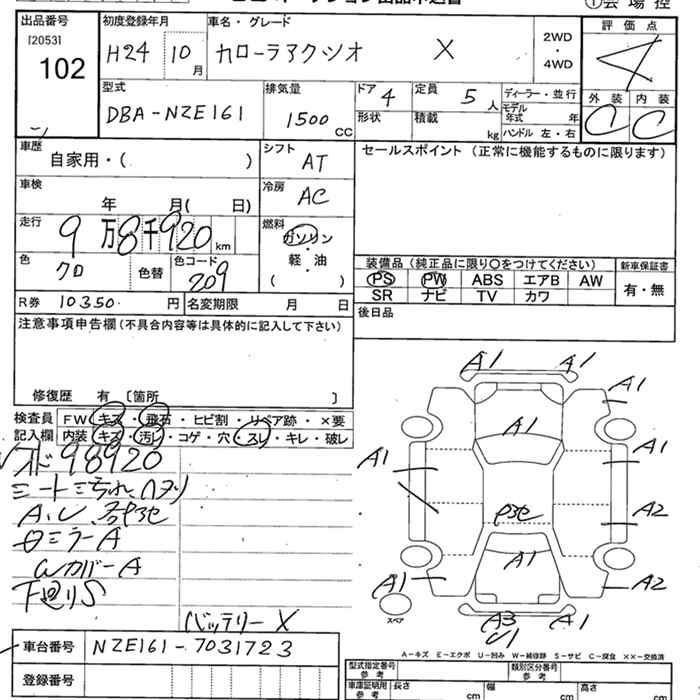 ①会場控
出品番号 初度登録年月 車名・グレード 評価点
[2053] H24 10月 カローラアクシオ X 2WD・4WD 4
102
型式 排気量 ドア 4 定員 5人 ディーラー・並行 外装 内装
DBA-NZE161 1500cc 形状 積載 kg モデル年式 年 C C
ハンドル 左・右
車歴 シフト セールスポイント(正常に機能するものに限ります)
自家用・( ) AT
車検 冷房
年 月( 日) AC
走行 燃料
9万8千920km ガソリン・軽油
色 色替 色コード ( )
クロ 209
装備品(純正品に限り○をつけてください) 新車保証書
PS PW ABS エアB AW 有・無
SR ナビ TV カワ
R券 10350円 名変期限 月 日 後日品
注意事項申告欄(不具合内容等は具体的に記入して下さい)
修復歴 有 〔箇所 〕
検査員 FW キズ・飛石・ヒビ割・リペア跡・×要
記入欄 内装 キズ・汚レ・コゲ・穴・スレ・キレ・破レ
98920
A.U
ミラーA
WカバーA
下廻りS
バッテリーX
A1 A1
A1 A1
A1 A1
A2
A1
A1 A2
A3 A1
U1
スペア
A-キズ E-エクボ U-凹み W-補修跡 S-サビ C-腐食 XX-交換済
車台番号 NZE161-7031723
登録番号
型式指定番号 参考 類別区分番号 参考
車庫証明用 参考 長さ cm 幅 cm 高さ cm